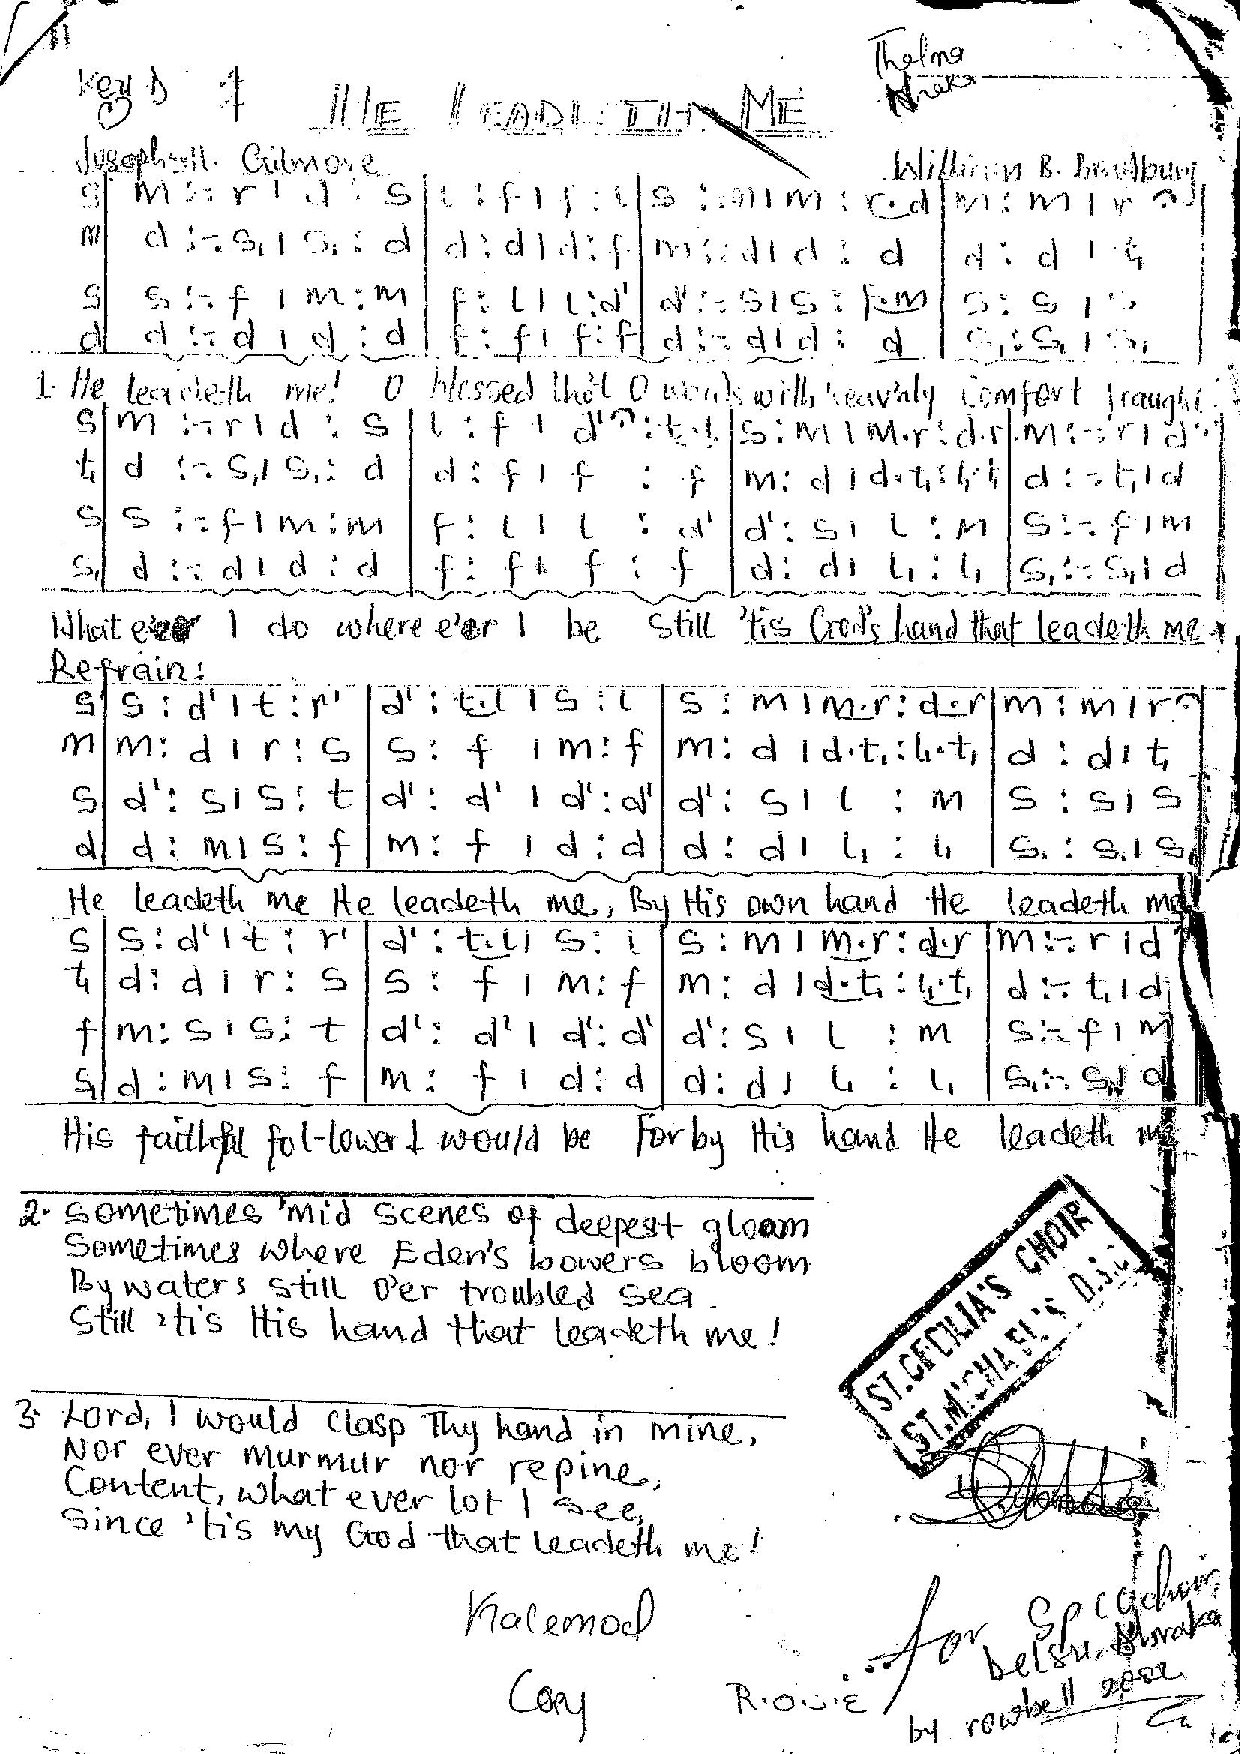 Key D
HE LEADETH ME
Thelma
Joseph H. Gilmore
William B. Bradbury
s| m :-.r | d : s | l : f | f : l | s :-.m | m : r.d | m : m | r
m| d :-.s, | s, : d | d : d | d : f | m :-.d | d : d | d : d | t,
s| s :-.f | m : m | f : l | l : d' | d' :-.s | s : f.m | s : s | s
d| d :-.d | d : d | f : f | f : f | d :-.d | d : d | s, : s, | s,
1. He leadeth me! O blessed tho't O words with heav'nly comfort fraught
s| m :-.r | d : s | l : f | d' : t.l | s : m | m.r : d.r | m :-.r | d
t,| d :-.s, | s, : d | d : f | f : f | m : d | d.t, : l,.t, | d :-.t, | d
s| s :-.f | m : m | f : l | l : d' | d' : s | l : m | s :-.f | m
s,| d :-.d | d : d | f : f | f : f | d : d | l, : l, | s, :-.s, | d
What e'er I do where e'er I be Still 'tis God's hand that leadeth me
Refrain:
s| s : d' | t : r' | d' : t.l | s : l | s : m | m.r : d.r | m : m | r
m| m : d | r : s | s : f | m : f | m : d | d.t, : l,.t, | d : d | t,
s| d' : s | s : t | d' : d' | d' : d' | d' : s | l : m | s : s | s
d| d : m | s : f | m : f | d : d | d : d | l, : l, | s, : s, | s,
He leadeth me He leadeth me, By His own hand He leadeth me
s| s : d' | t : r' | d' : t.l | s : l | s : m | m.r : d.r | m :-.r | d
t,| d : d | r : s | s : f | m : f | m : d | d.t, : l,.t, | d :-.t, | d
f| m : s | s : t | d' : d' | d' : d' | d' : s | l : m | s :-.f | m
s,| d : m | s : f | m : f | d : d | d : d | l, : l, | s, :-.s, | d
His faithful fol-lower I would be For by His hand He leadeth me
2. Sometimes 'mid scenes of deepest gloom
Sometimes where Eden's bowers bloom
By waters still o'er troubled sea.
Still 'tis His hand that leadeth me!
3. Lord, I would clasp Thy hand in mine,
Nor ever murmur nor repine,
Content, what ever lot I see,
Since 'tis my God that leadeth me!
ST. CECILIA'S CHOIR
ST. MICHAEL'S D.S.C
Kalemod
...for
Delsu, Abraka
Cory
by rowbell